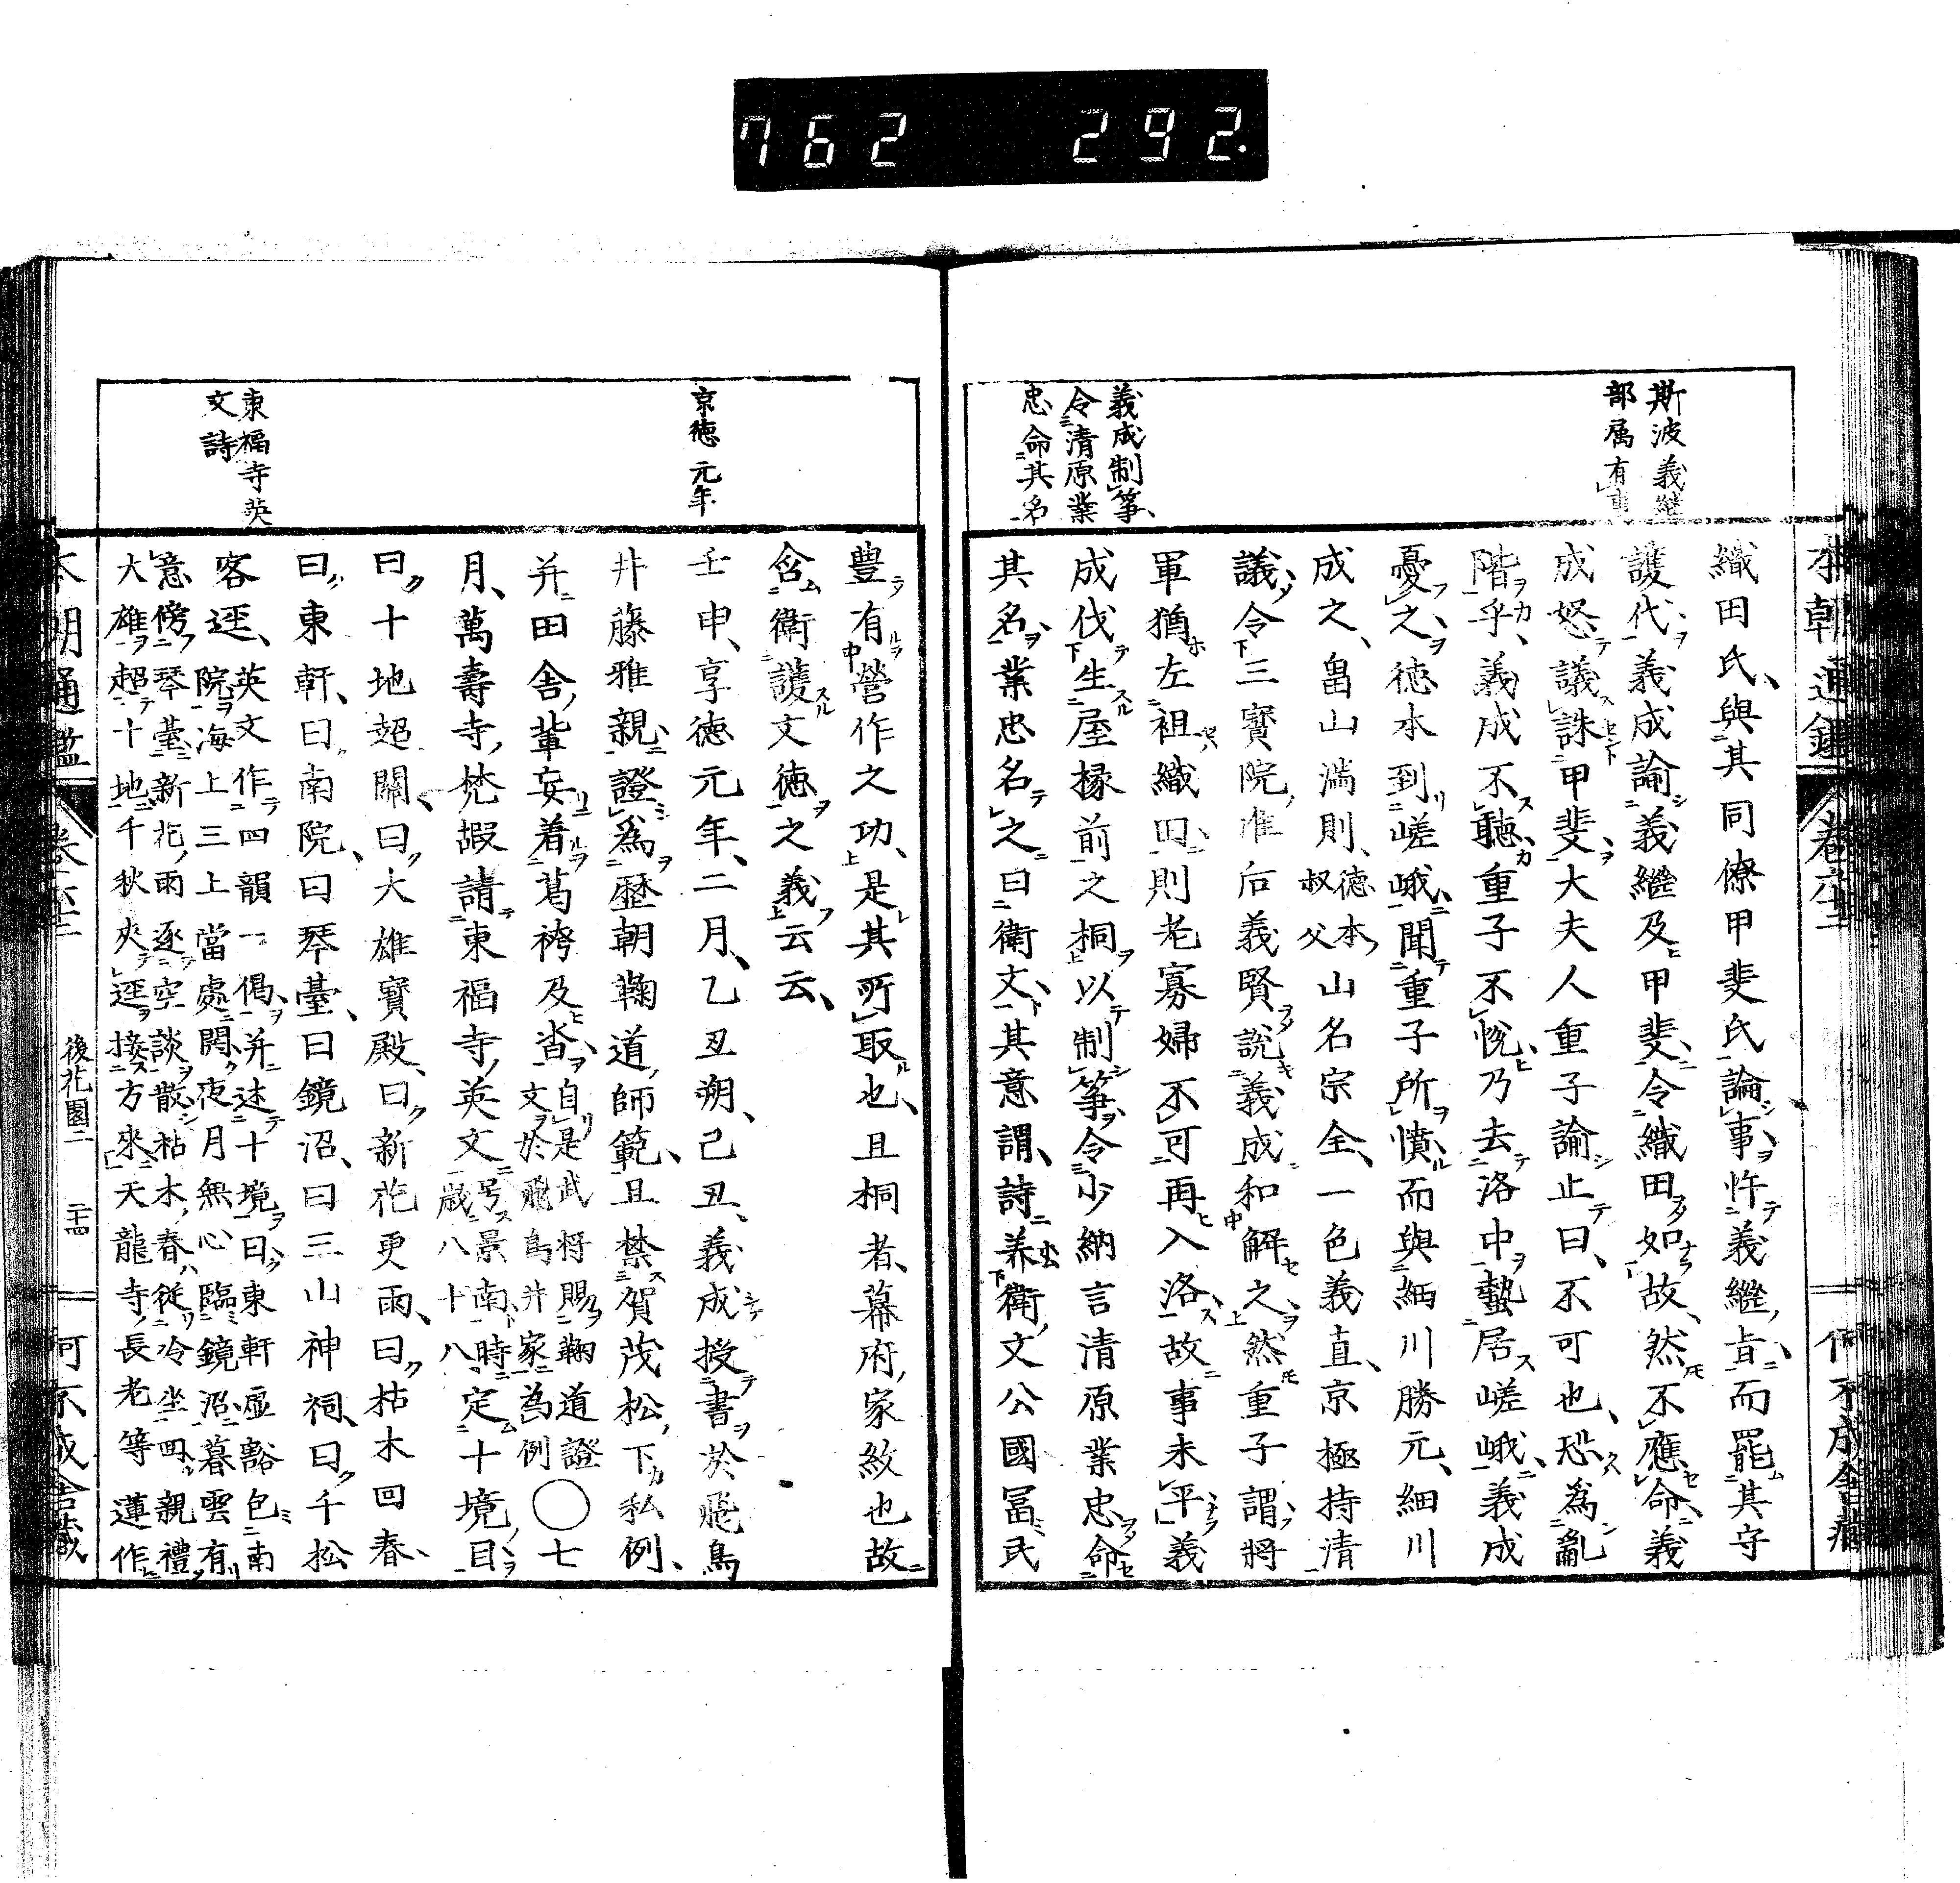 762 292.
斯波義継
部属有事
義成制箏、
令清原業
忠命其名
織田氏、與其同僚甲斐氏論事、忤義繼、旨而罷其守
護代、義成諭義繼及甲斐、令織田如故、然不應命、義
成怒議誅甲斐、大夫人重子諭止曰、不可也、恐爲亂
階乎、義成不聽、重子不悅、乃去洛中蟄居嵯峨、義成
憂之、徳本到嵯峨、聞重子所憤、而與細川勝元、細川
成之、畠山滿則、徳本叔父山名宗全、一色義直、京極持清
議、令三寳院准后義賢說義成和解之、然重子謂、將
軍猶左袒織田、則老寡婦不可再入洛、故事未平、義
成伐生屋椽前之桐以制箏、令少納言清原業忠命
其名、業忠名之曰衛文、其意謂、詩美衛文公國冨民
豊有營作之功、是其所取也、且桐者、幕府家紋也故
含衛護文徳之義云云、
京徳元年
東福寺英
文詩
壬申、享徳元年、二月、乙丑朔、己丑、義成授書於飛鳥
井藤雅親、證爲歷朝鞠道師範、且禁賀茂松下私例、
并田舎輩妄着葛袴及沓、自是武将賜鞠道證文於飛鳥井家為例〇七
月、萬壽寺梵嘏請東福寺英文号景南時歳八十八定十境目、
曰十地超關、曰大雄寳殿、曰新花更雨、曰枯木回春、
曰東軒、曰南院、曰琴臺、曰鏡沼、曰三山神祠、曰千松
客逕、英文作四韻一偈、并述十境曰、東軒虚豁包南
院、海上三上當處開、夜月無心臨鏡沼、暮雲有
意傍琴臺、新花雨逐空談散、枯木春從冷坐回、親禮
大雄超十地、千秋夾逕接方來、天龍寺長老等蓮作
本朝通鑑 卷六十二 後花園二 二十四 何不成舎蔵